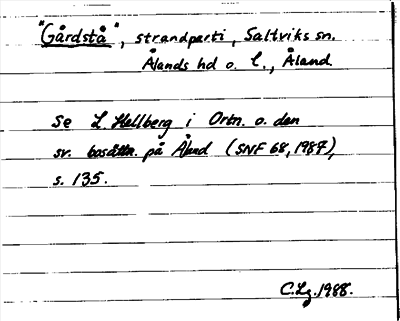 "Gårdstå", strandparti, Saltviks sn.
Ålands hd o. l., Åland
Se L. Hellberg i Ortn. o. den
sv. bosättn. på Åland (SNF 68, 1987),
s. 135.
C.Lg. 1988.